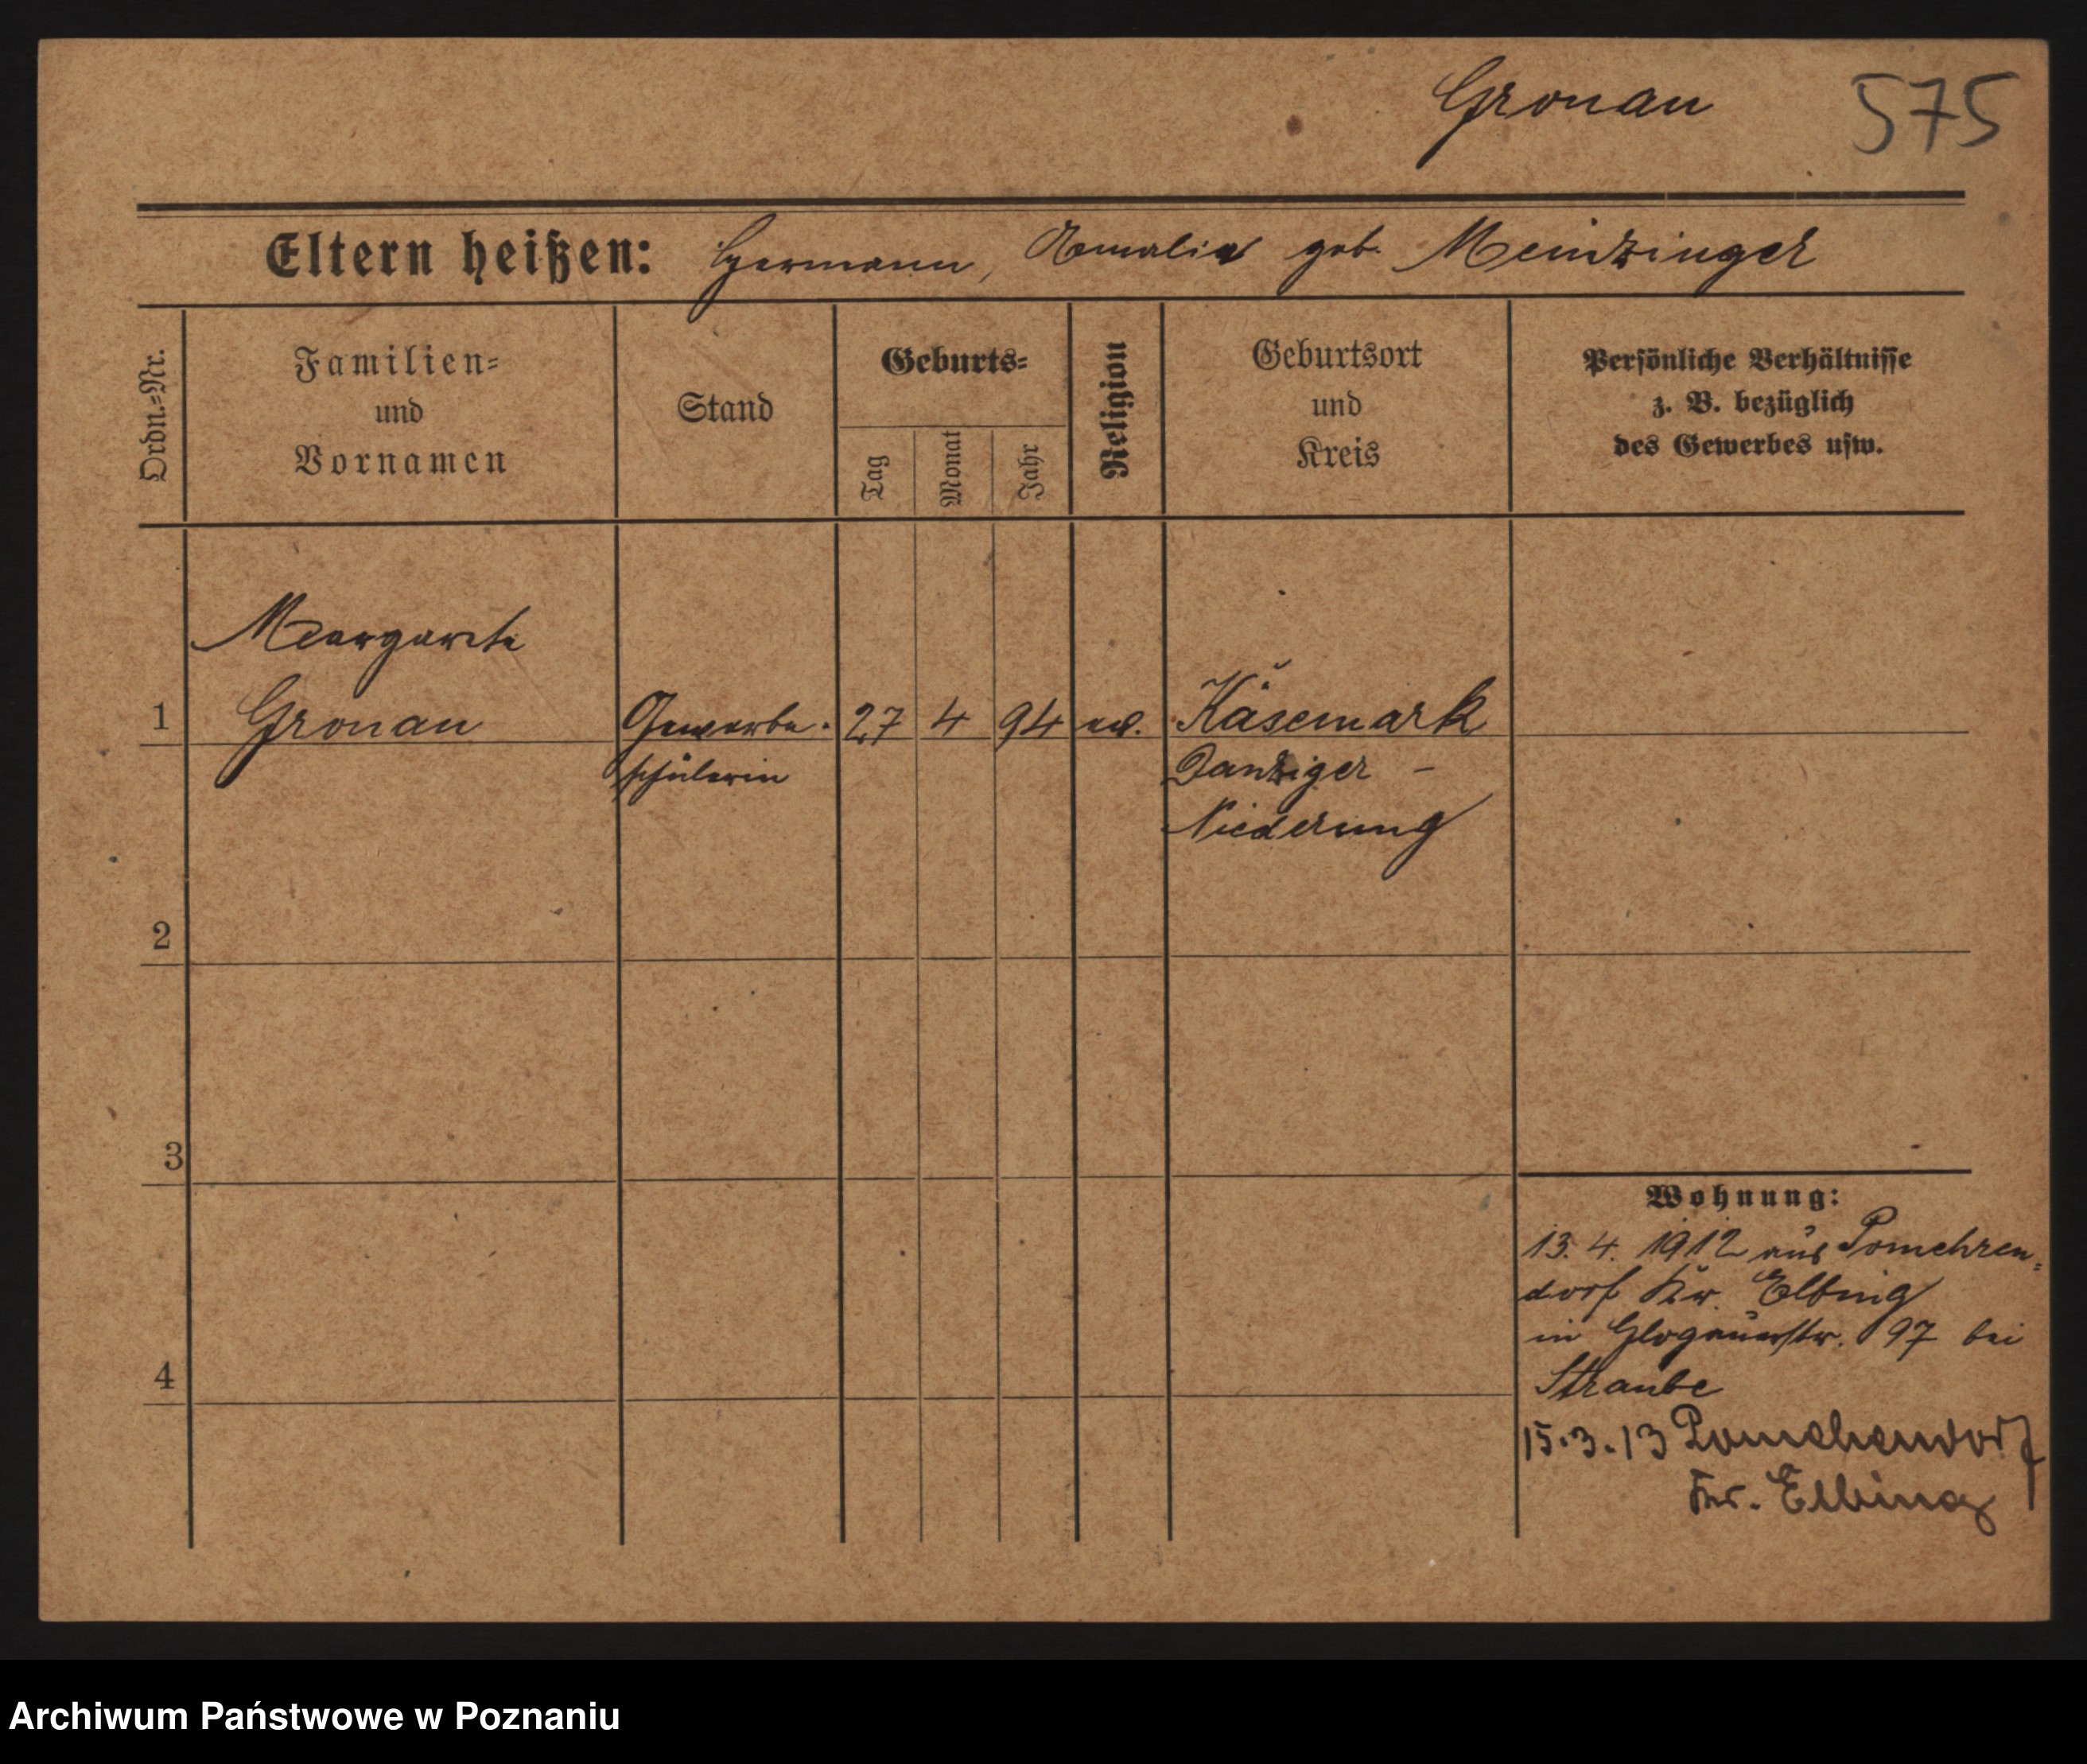 Gronau 575
Eltern heißen: Hermann, Amalie geb. Meinzinger
Ordn.=Nr.
Familien=
und
Vornamen
Stand
Geburts=
Tag
Monat
Jahr
Religion
Geburtsort
und
Kreis
Persönliche Verhältnisse
z. B. bezüglich
des Gewerbes usw.
Margarete
1 Gronau Gewerbe- 27 4 94 ev. Käsemark
schülerin Danziger -
Niederung
2
3
Wohnung:
13. 4. 1912 aus Pomehren=
dorf Kr. Elbing
in Glogauerstr. 97 bei
4 Straube
15.3.13 Pomehendorf
Kr. Elbing
Archiwum Państwowe w Poznaniu